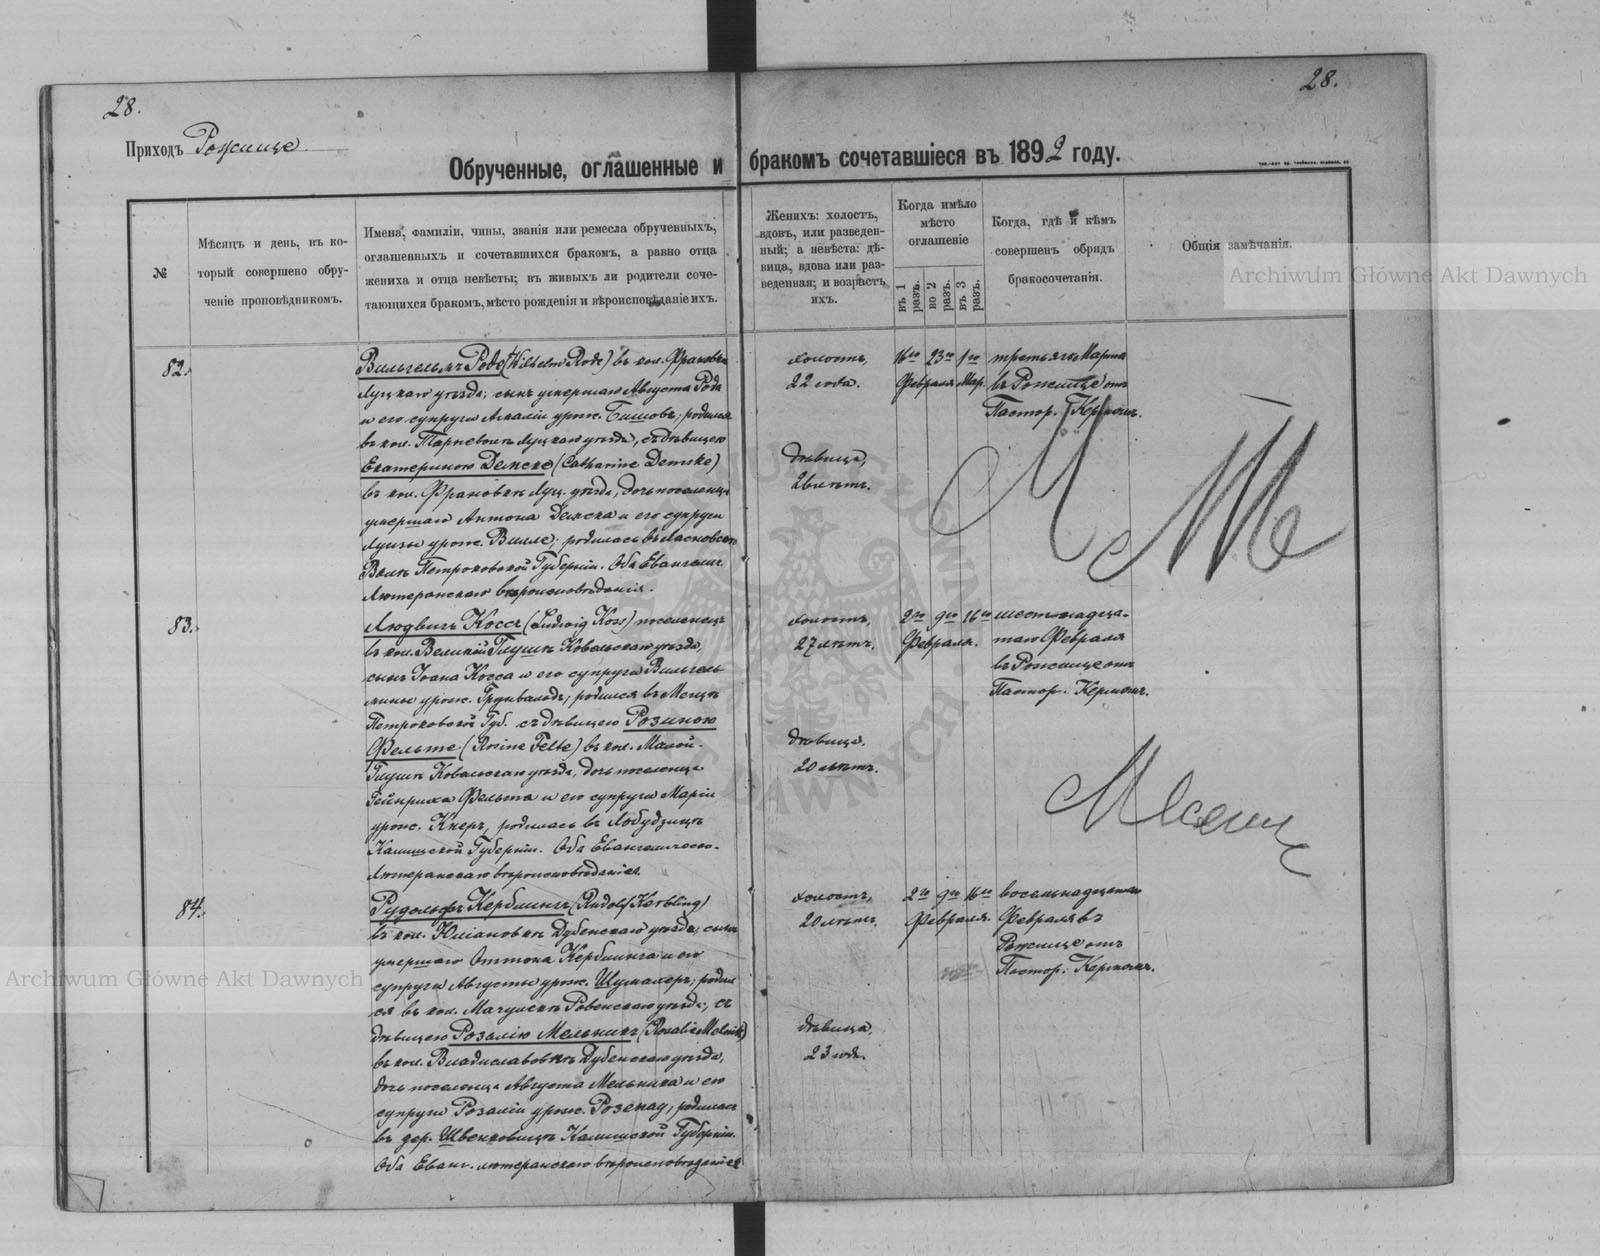 28.
28.
Приходъ Рожище
Обрученные, оглашенные и бракомъ сочетавшіеся въ 1892 году.
№
Мѣсяцъ и день, въ ко-
торый совершено обру-
ченіе проповѣдникомъ.
Имена, фамиліи, чины, званія или ремесла обрученныхъ,
оглашенныхъ и сочетавшихся бракомъ, а равно отца
жениха и отца невѣсты; въ живыхъ ли родители соче-
тающихся бракомъ, мѣсто рожденія и вѣроисповѣданіе ихъ.
Женихъ: холостъ,
вдовъ, или разведен-
ный; а невѣста: дѣ-
вица, вдова или раз-
веденная; и возрастъ
ихъ.
Когда имѣло
мѣсто
оглашеніе
въ 1 разъ.
во 2 разъ.
въ 3 разъ.
Когда, гдѣ и кѣмъ
совершенъ обрядъ
бракосочетанія.
Общія замѣчанія.
Archiwum Główne Akt Dawnych
82.
Вильгельмъ Роде (Wilhelm Rode) въ кол. Франовкѣ
Луцкаго уѣзда; сынъ умершаго Августа Роде
и его супруги Амаліи урож. ; родился
въ кол. Луцкаго уѣзда, съ дѣвицею
Екатериною Демске (Catharine Demske)
въ кол. Франовкѣ Луц. уѣзда, дочь поселенца
умершаго Антона Демска и его супруги
Луизы урож. Вилле; родилась въ Ласковской
Волѣ Петроковской Губерніи. Оба Евангелич.
Лютеранскаго вѣроисповѣданія.
холостъ,
22 года.
дѣвица,
лѣтъ.
16го 23го 1го
Февраля Мар.
третьяго Марта
въ Рожище отъ
Пастор. Керномъ.
83.
Людвигъ Коссъ (Ludwig Koss) поселенецъ
въ кол. Великой Глушѣ Ковельскаго уѣзда,
сынъ Іоана Косса и его супруги Вильгель-
мины урож. Грунвальдъ; родился въ
Петроковской Губ. съ дѣвицею Розиною
Фельте (Rosine Felte) въ кол. Малой-
Глушѣ Ковельскаго уѣзда, дочь поселенца
Гейнриха Фельта и его супруги Маріи
урож. Кнеръ, родилась въ
Калишской Губерніи. Оба Евангелическо-
Лютеранскаго вѣроисповѣданія.
холостъ,
27 лѣтъ.
дѣвица.
20 лѣтъ.
2го 9го 16го
Февраля.
шестнадца-
таго Февраля
въ Рожище отъ
Пастор. Керномъ.
84.
Рудольфъ Керблингъ (Rudolf Kerbling)
въ кол. Юліановкѣ Дубенскаго уѣзда; сынъ
умершаго Оттона Керблинга и его
супруги Августы урож. Шумахеръ; родил-
ся въ кол. Ровенскаго уѣзда, съ
дѣвицею Розалію Мельникъ (Rosalie Melnik)
въ кол. Владиславовкѣ Дубенскаго уѣзда,
дочь поселенца Августа Мельника и его
супруги Розаліи урож. Розенау, родилась
въ дер. Калишской Губерніи.
Оба Еванг. лютеранскаго вѣроисповѣданія
холостъ,
20 лѣтъ.
дѣвица,
23 года.
2го 9го 16го
Февраля.
восемнадцатаго
Февраля въ
Рожище отъ
Пастор. Керномъ.
Archiwum Główne Akt Dawnych